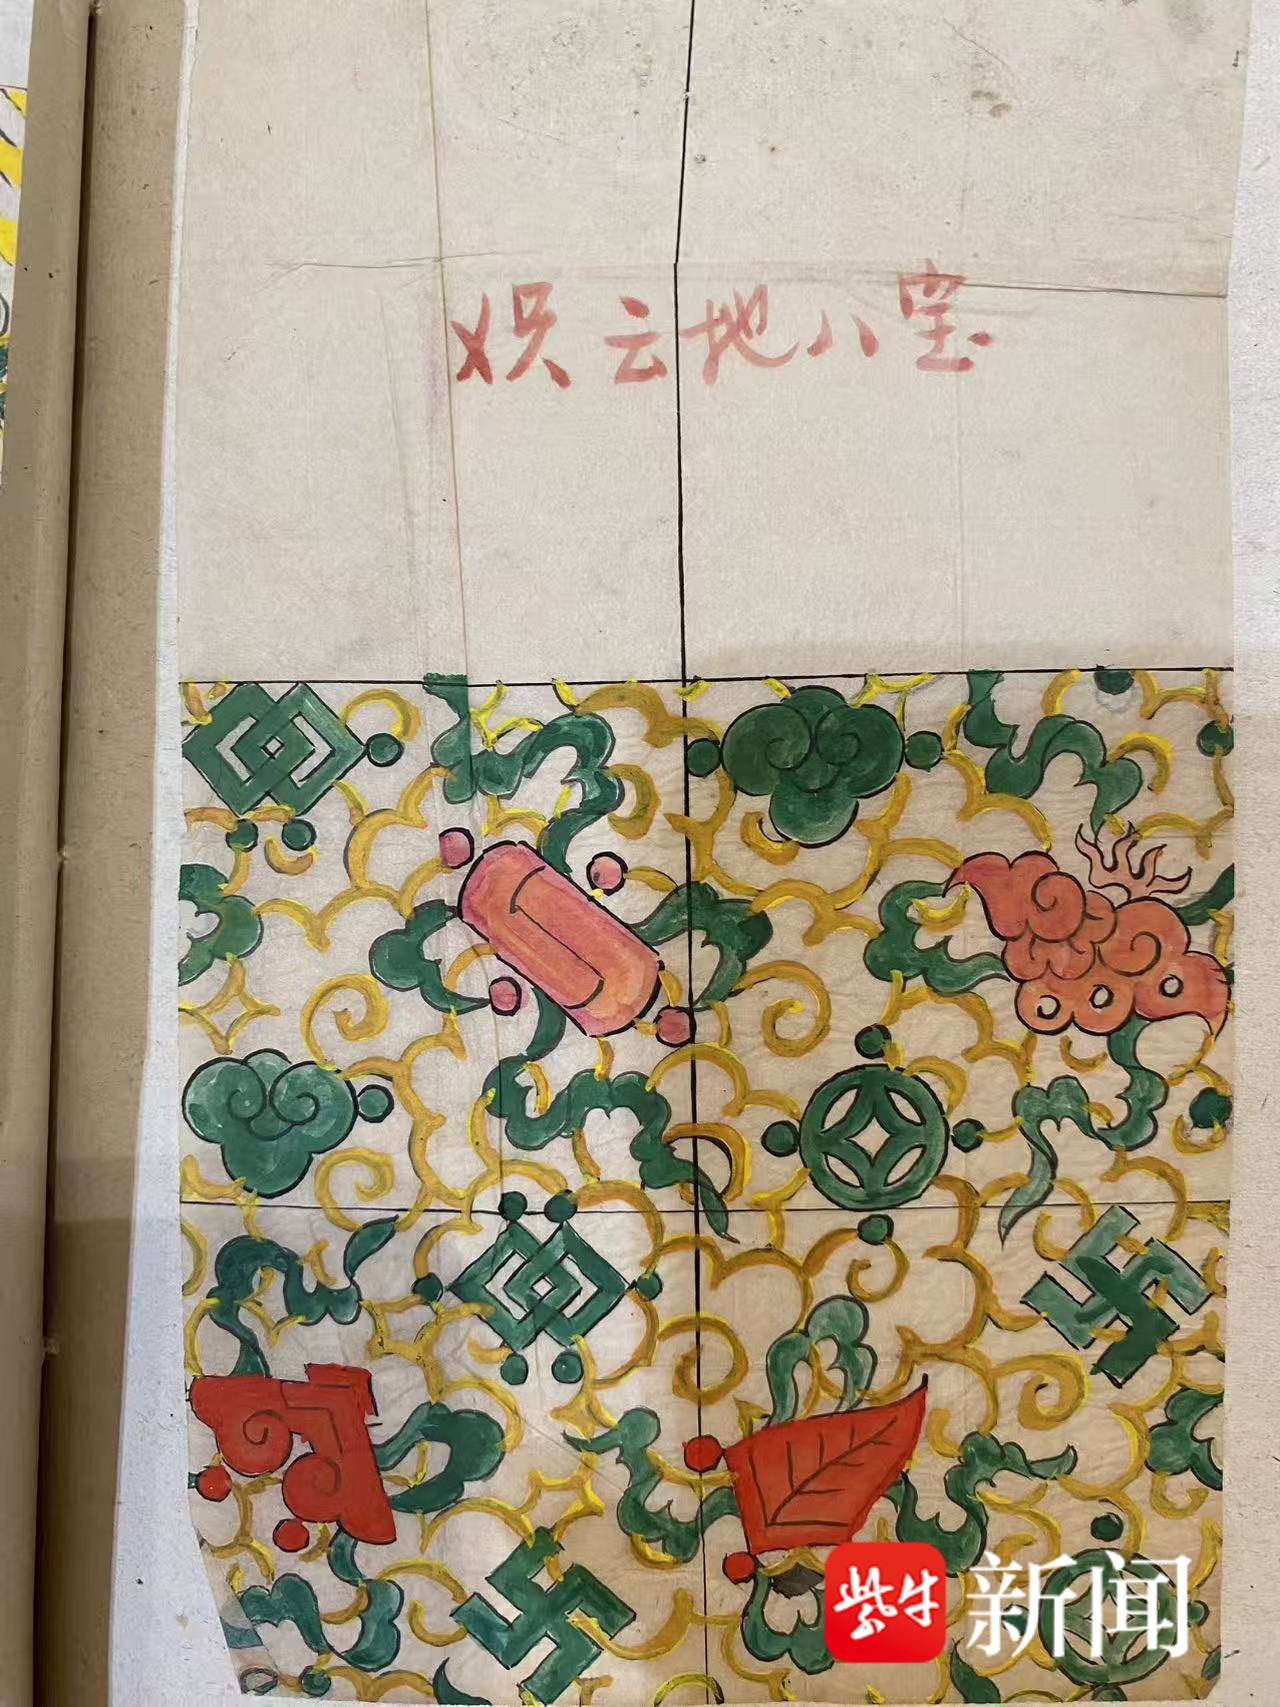 云地八宝
紫牛 新闻